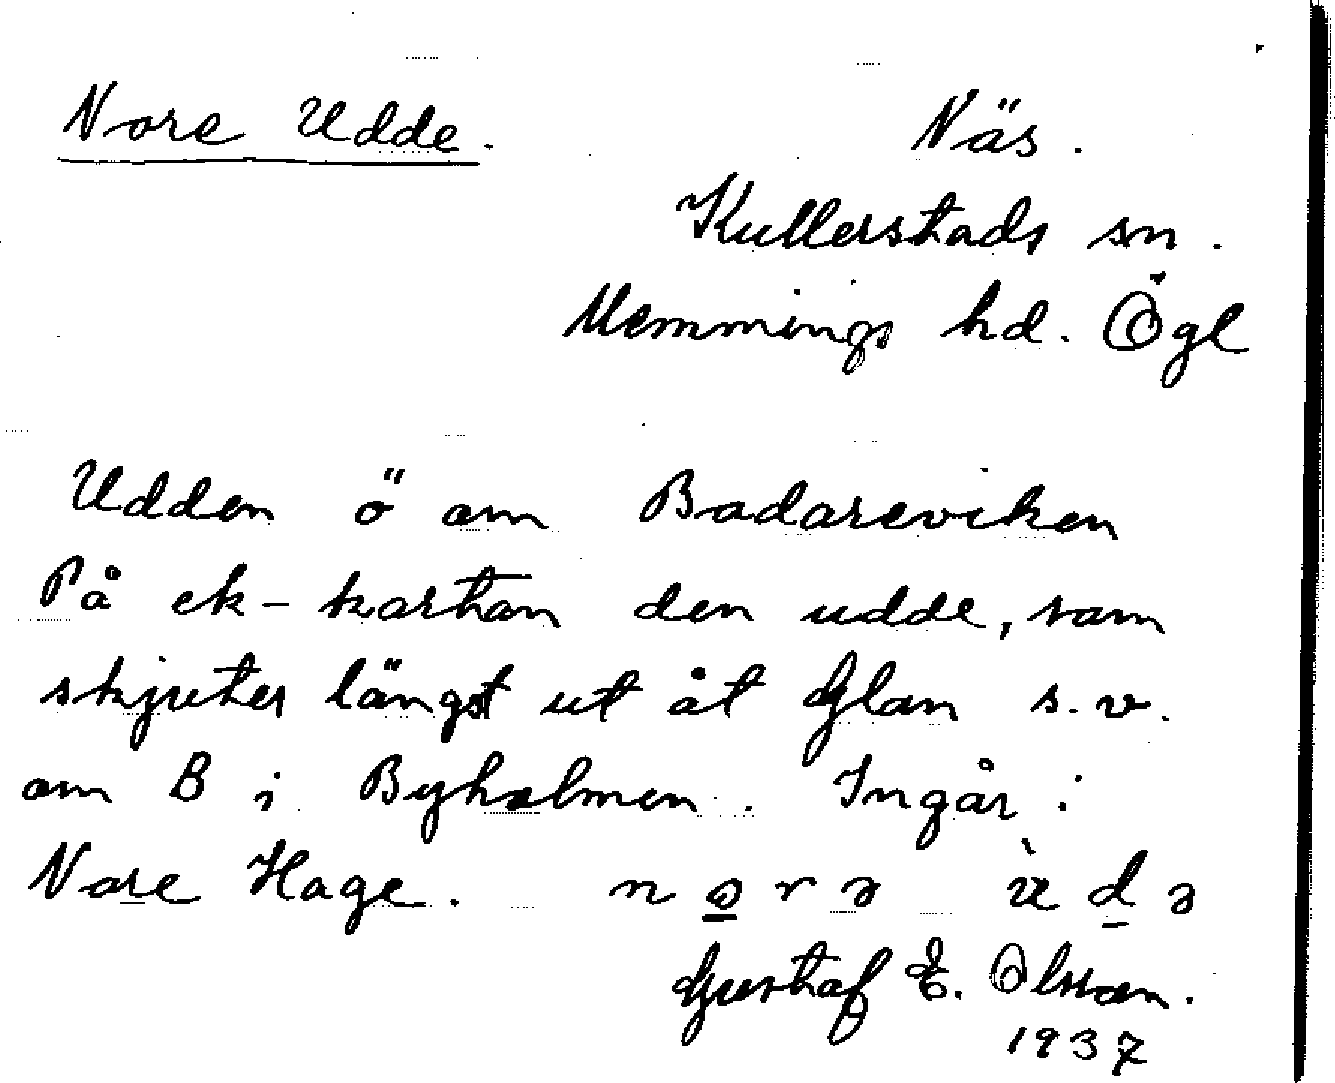 Nore Udde. Näs.
Kullerstads sn.
Memmings hd. Ögl
Udden ö om Badareviken
På ek-kartan den udde, som
skjuter längst ut åt Glan s.v.
om B i Byholmen. Ingår i
Nore Hage. n o r ə ù d ə
Gustaf E. Olsson.
1937